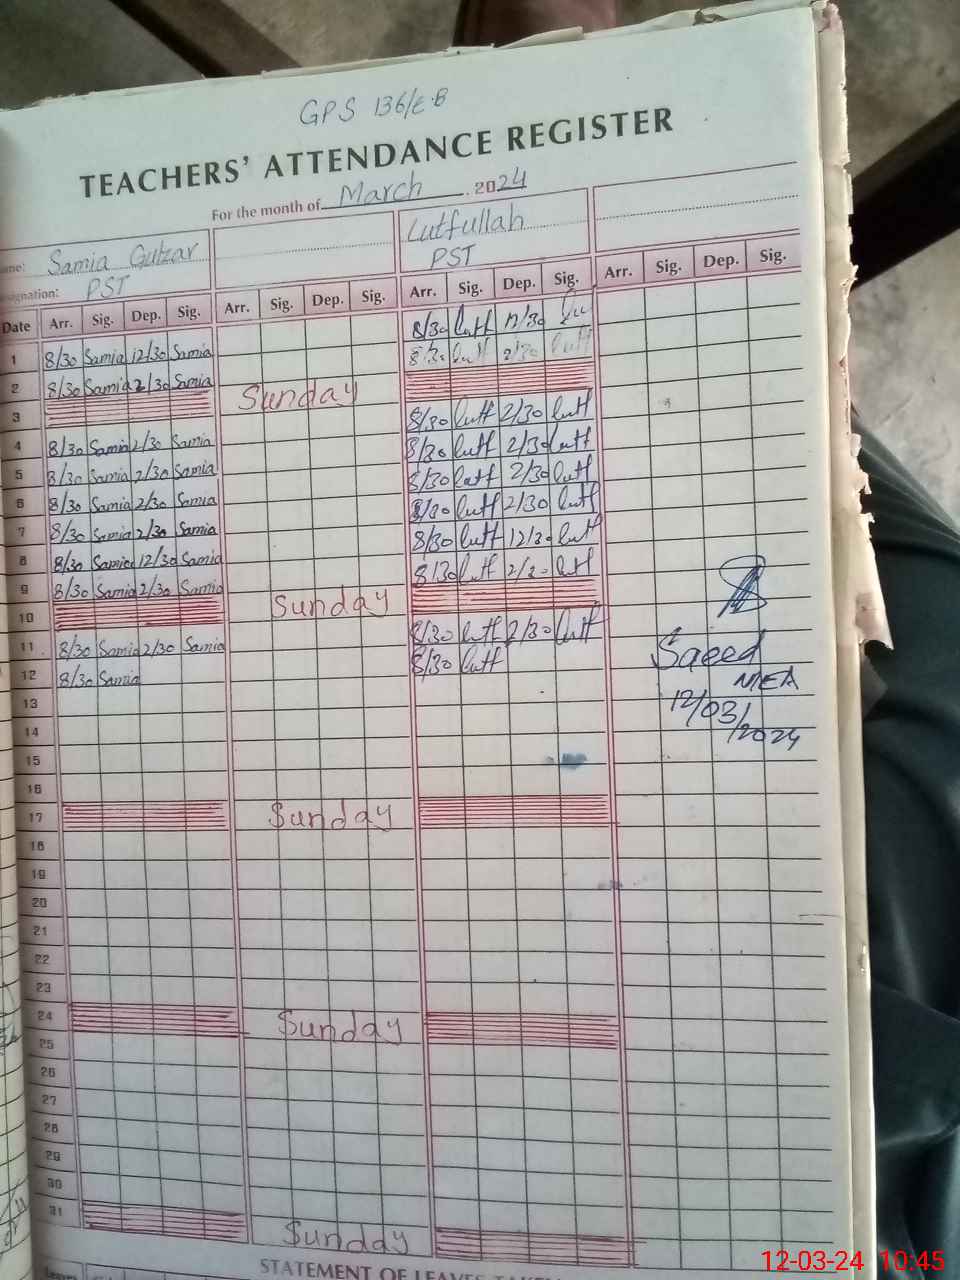 GPS 136/E.B
TEACHERS' ATTENDANCE REGISTER
For the month of March . 2024
Samia Gulzar
Lutfullah
PST
PST
Date Arr. Sig. Dep. Sig. Arr. Sig. Dep. Sig. Arr. Sig. Dep. Sig. Arr. Sig. Dep. Sig.
1 8/30 Samia 12/30 Samia 8/30 lutf 12/30
2 8/30 Samia 2/30 Samia 8/30 lutf 2/30 lutf
3 Sunday
4 8/30 Samia 2/30 Samia 8/30 lutf 2/30 lutf
5 8/30 Samia 2/30 Samia 8/30 lutf 2/30 lutf
6 8/30 Samia 2/30 Samia 8/30 lutf 2/30 lutf
7 8/30 Samia 2/30 Samia 8/30 lutf 2/30 lutf
8 8/30 Samia 12/30 Samia 8/30 lutf 12/30 lutf
9 8/30 Samia 2/30 Samia 8/30 lutf 2/30 lutf
10 Sunday
11 8/30 Samia 2/30 Samia 8/30 lutf 2/30 lutf
12 8/30 Samia 8/30 lutf
Saeed
MEA
12/03/2024
13
14
15
16
17 Sunday
18
19
20
21
22
23
24 Sunday
25
26
27
28
29
30
31 Sunday
STATEMENT OF LEAVES
Leaves
12-03-24 10:45